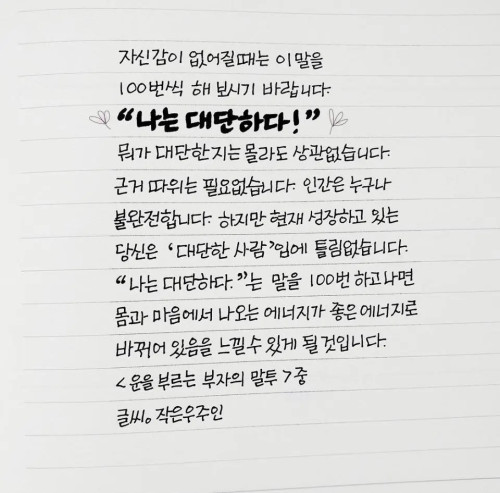 자신감이 없어질때는 이 말을
100번씩 해 보시기 바랍니다.
“나는 대단하다!”
뭐가 대단한지는 몰라도 상관없습니다.
근거 따위는 필요없습니다. 인간은 누구나
불완전합니다. 하지만 현재 성장하고 있는
당신은 ‘대단한 사람’임에 틀림없습니다.
“나는 대단하다.”는 말을 100번 하고나면
몸과 마음에서 나오는 에너지가 좋은 에너지로
바뀌어 있음을 느낄수 있게 될 것입니다.
<운을 부르는 부자의 말투>중
글씨。작은우주인